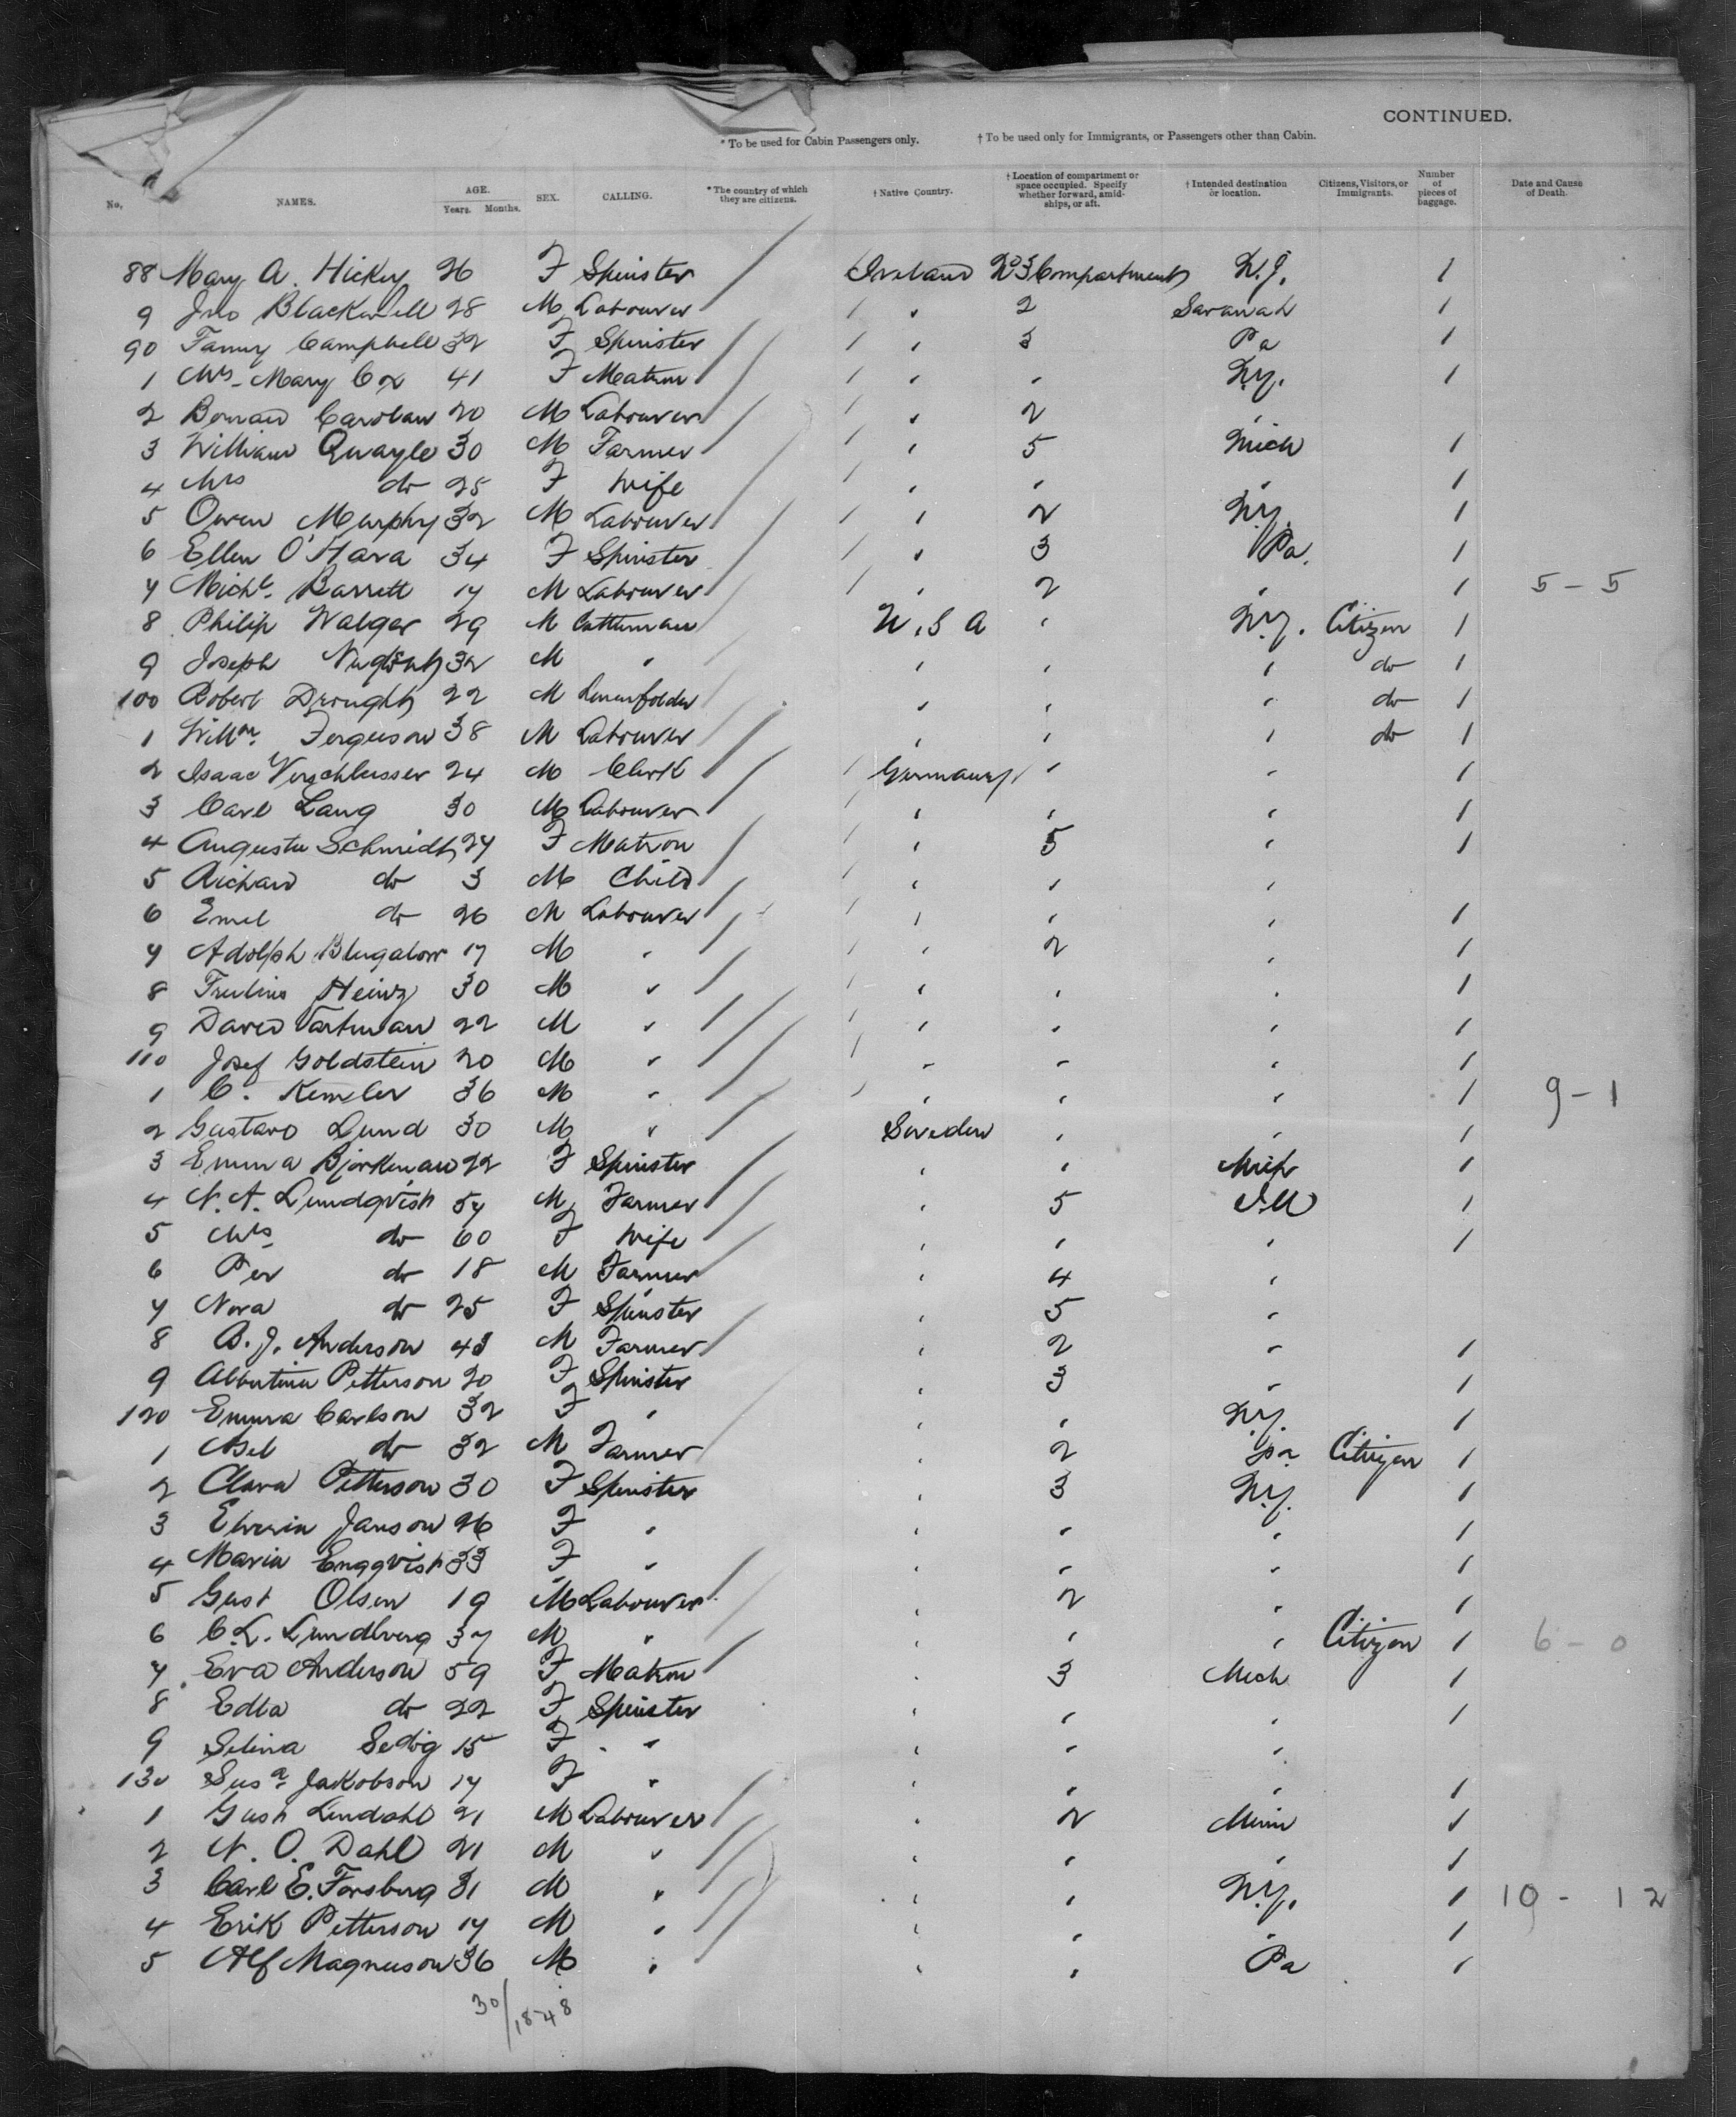 CONTINUED.
* To be used for Cabin Passengers only. † To be used only for Immigrants, or Passengers other than Cabin.
No. NAMES. AGE. Years. Months. SEX. CALLING. * The country of which they are citizens. † Native Country. † Location of compartment or space occupied. Specify whether forward, amidships, or aft. † Intended destination or location. Citizens, Visitors, or Immigrants. Number of pieces of baggage. Date and Cause of Death.
88 Mary A. Hickey 26 F Spinster Ireland No 3 Compartment 1
9 Jno Blackwell 28 M Labourer " 2 Savanah 1
90 Fanny Campbell 32 F Spinster " 3 Pa 1
1 Mrs Mary Cox 41 F Matron " " N.Y. 1
2 Bernard Carolan 20 M Labourer " 2 "
3 William Quayle 30 M Farmer " 5 Mich 1
4 Mrs do 25 F Wife " " " 1
5 Owen Murphy 32 M Labourer " 2 N.Y. 1
6 Ellen O'Hara 34 F Spinster " 3 Pa. 1
7 Michl. Barrett 17 M Labourer " 2 " 1 5 - 5
8 Philip Walger 29 M Cattleman U.S A " N.Y. Citizen 1
9 Joseph 32 M " " " " do 1
100 Robert Drought 22 M Linenfolder " " " do 1
1 Willm. Ferguson 38 M Labourer " " " do 1
2 Isaac Verschleisser 24 M Clerk Germany " " 1
3 Carl Lang 30 M Labourer " " " 1
4 Auguste Schmidt 27 F Matron " 5 " 1
5 Richard do 3 M Child " " "
6 Emel do 26 M Labourer " " " 1
7 Adolph 17 M " " 2 " 1
8 Heinz 30 M " " " " 1
9 David 22 M " " " " 1
110 Josef Goldstein 20 M " " " " 1
1 C. Kemler 36 M " " " " 1 9 - 1
2 Gustavo Lund 30 M " Sweden " " 1
3 Emma Bjorkman 22 F Spinster " " Mich 1
4 N. A. Lundqvist 57 M Farmer " 5 Ill 1
5 Mrs do 60 F Wife " " " 1
6 Per do 18 M Farmer " 4 "
7 Nora do 25 F Spinster " 5 "
8 A. J. Anderson 43 M Farmer " 2 " 1
9 Albertina Petterson 20 F Spinster " 3 " 1
120 Emma Carlson 32 F " " " N.Y. 1
1 Axel do 32 M Farmer " 2 Pa Citizen 1
2 Clara Petterson 30 F Spinster " 3 N.Y. 1
3 Janson 26 F " " " " 1
4 Maria Engqvist 33 F " " " " 1
5 Gust Olsen 19 M Labourer " 2 " 1
6 C. L. Lundberg 37 M " " " " Citizen 1 6 - 0
7 Eva Anderson 59 F Matron " 3 Mich 1
8 Edla do 22 F Spinster " " " 1
9 Selina 15 F " " " "
130 Susa. Jakobson 17 F " " " " 1
1 Gust Lindahl 21 M Labourer " 2 Minn 1
2 N. O. Dahl 21 M " " " " 1
3 Carl E. Forsberg 31 M " " " N.Y. 1 10 - 12
4 Erik Petterson 17 M " " " " 1
5 Alf Magnuson 36 M " " " Pa 1
30/18-48